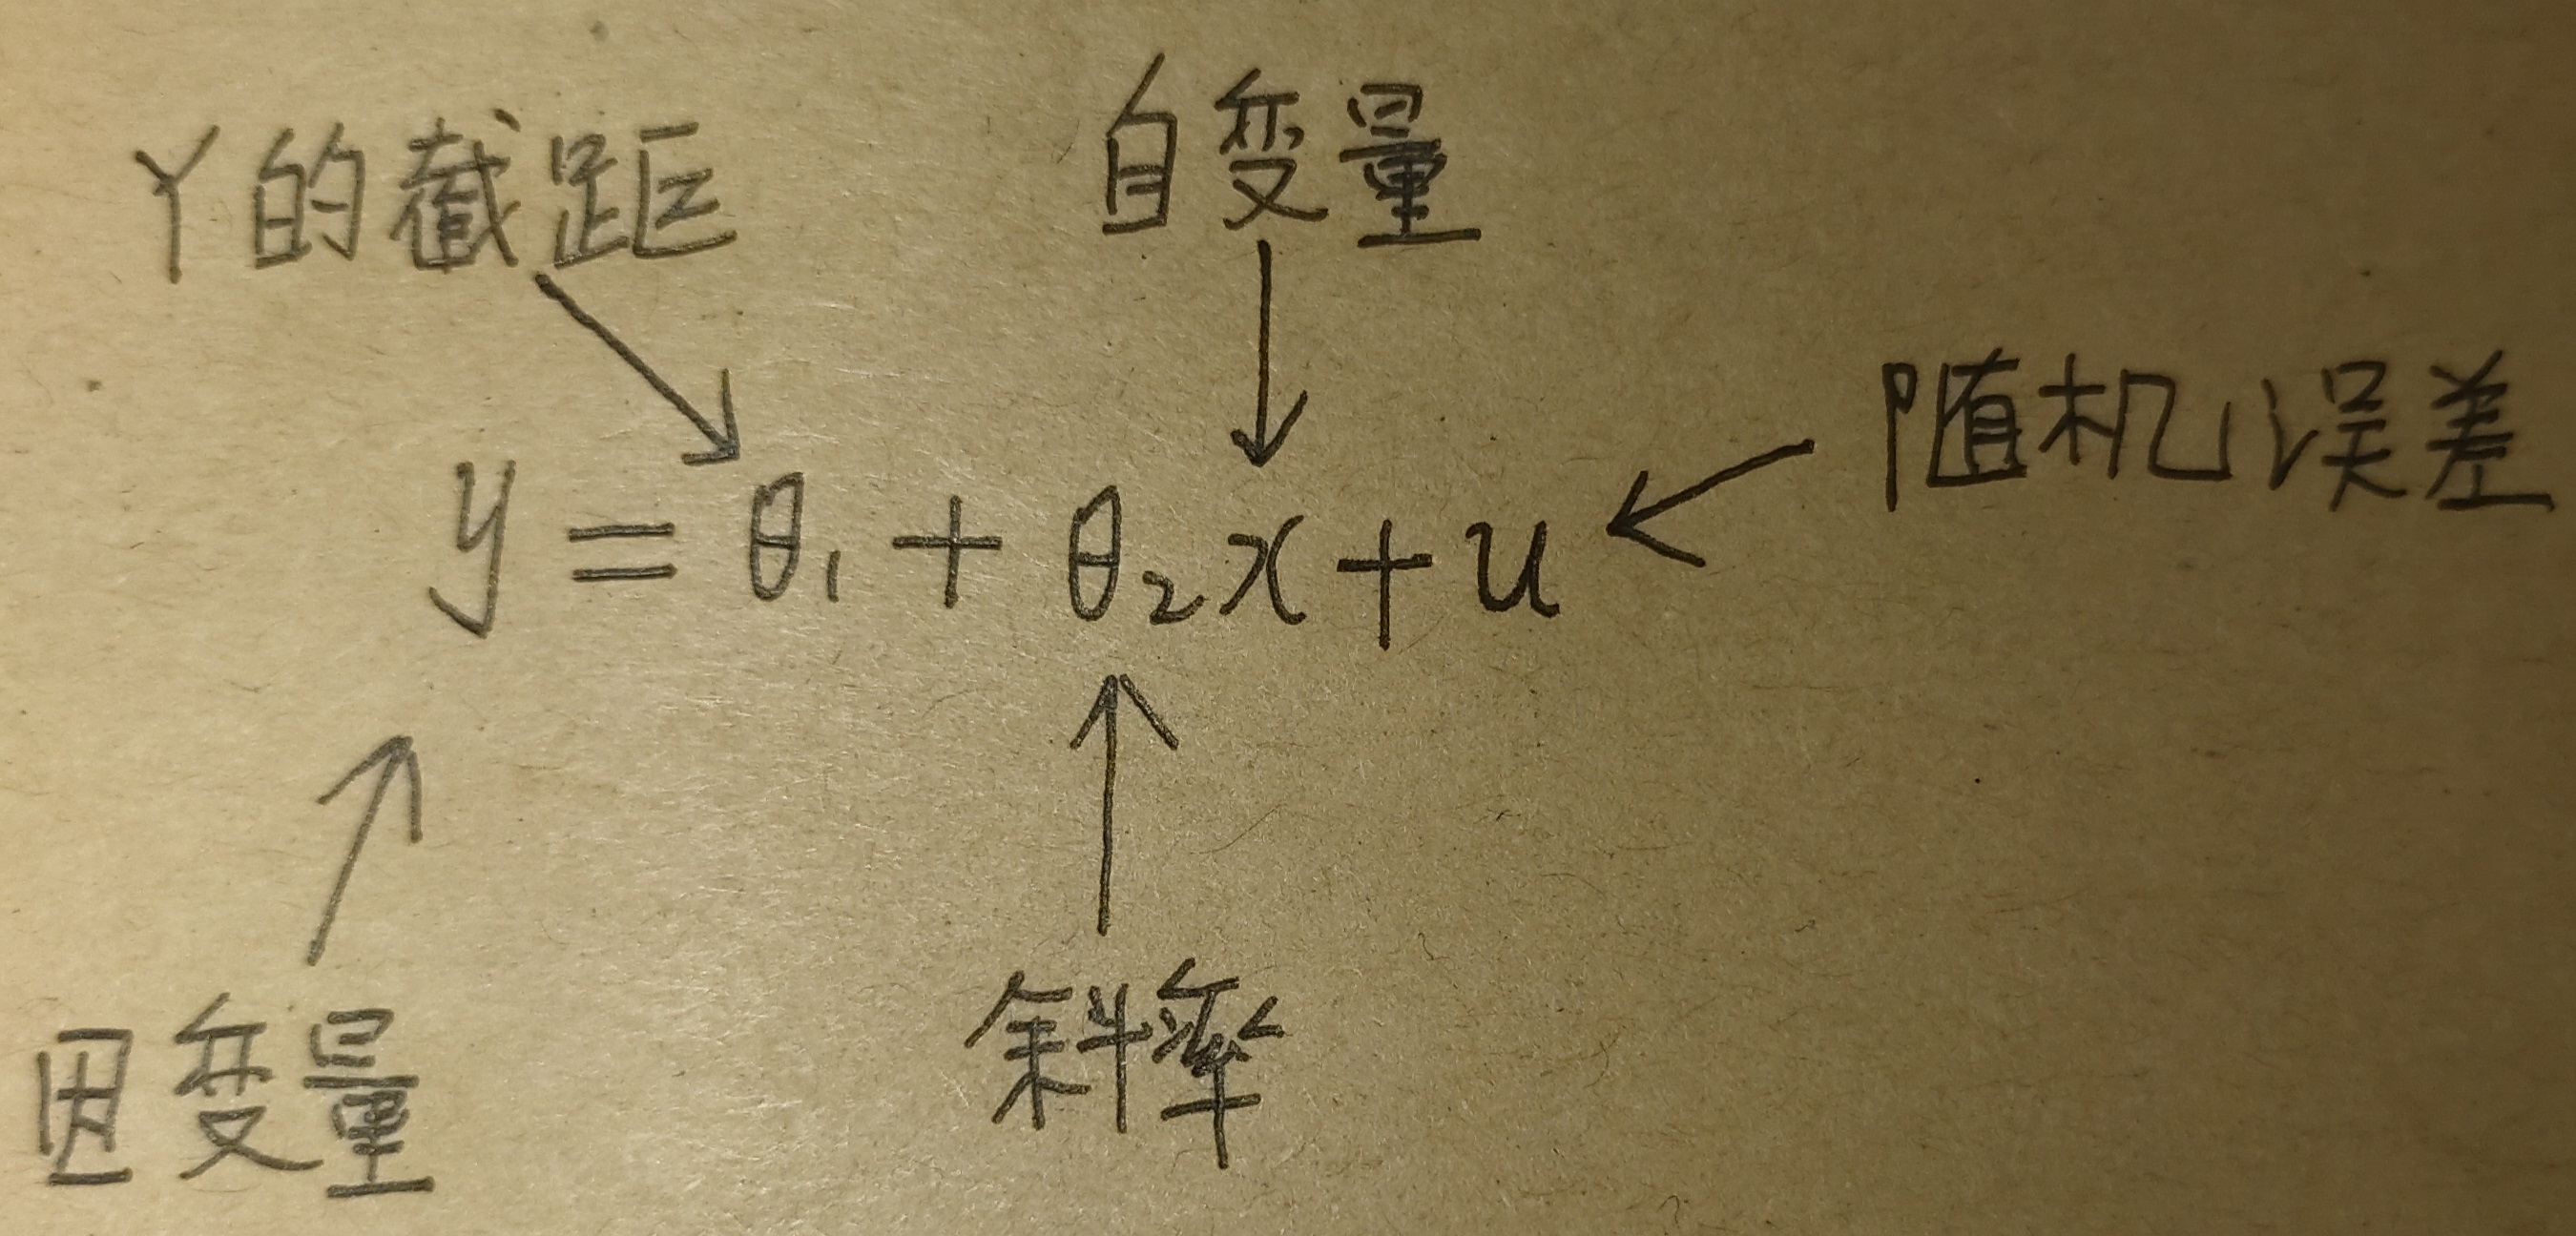 Y的截距
自变量
随机误差
y = θ₁ + θ₂x + u
因变量
斜率